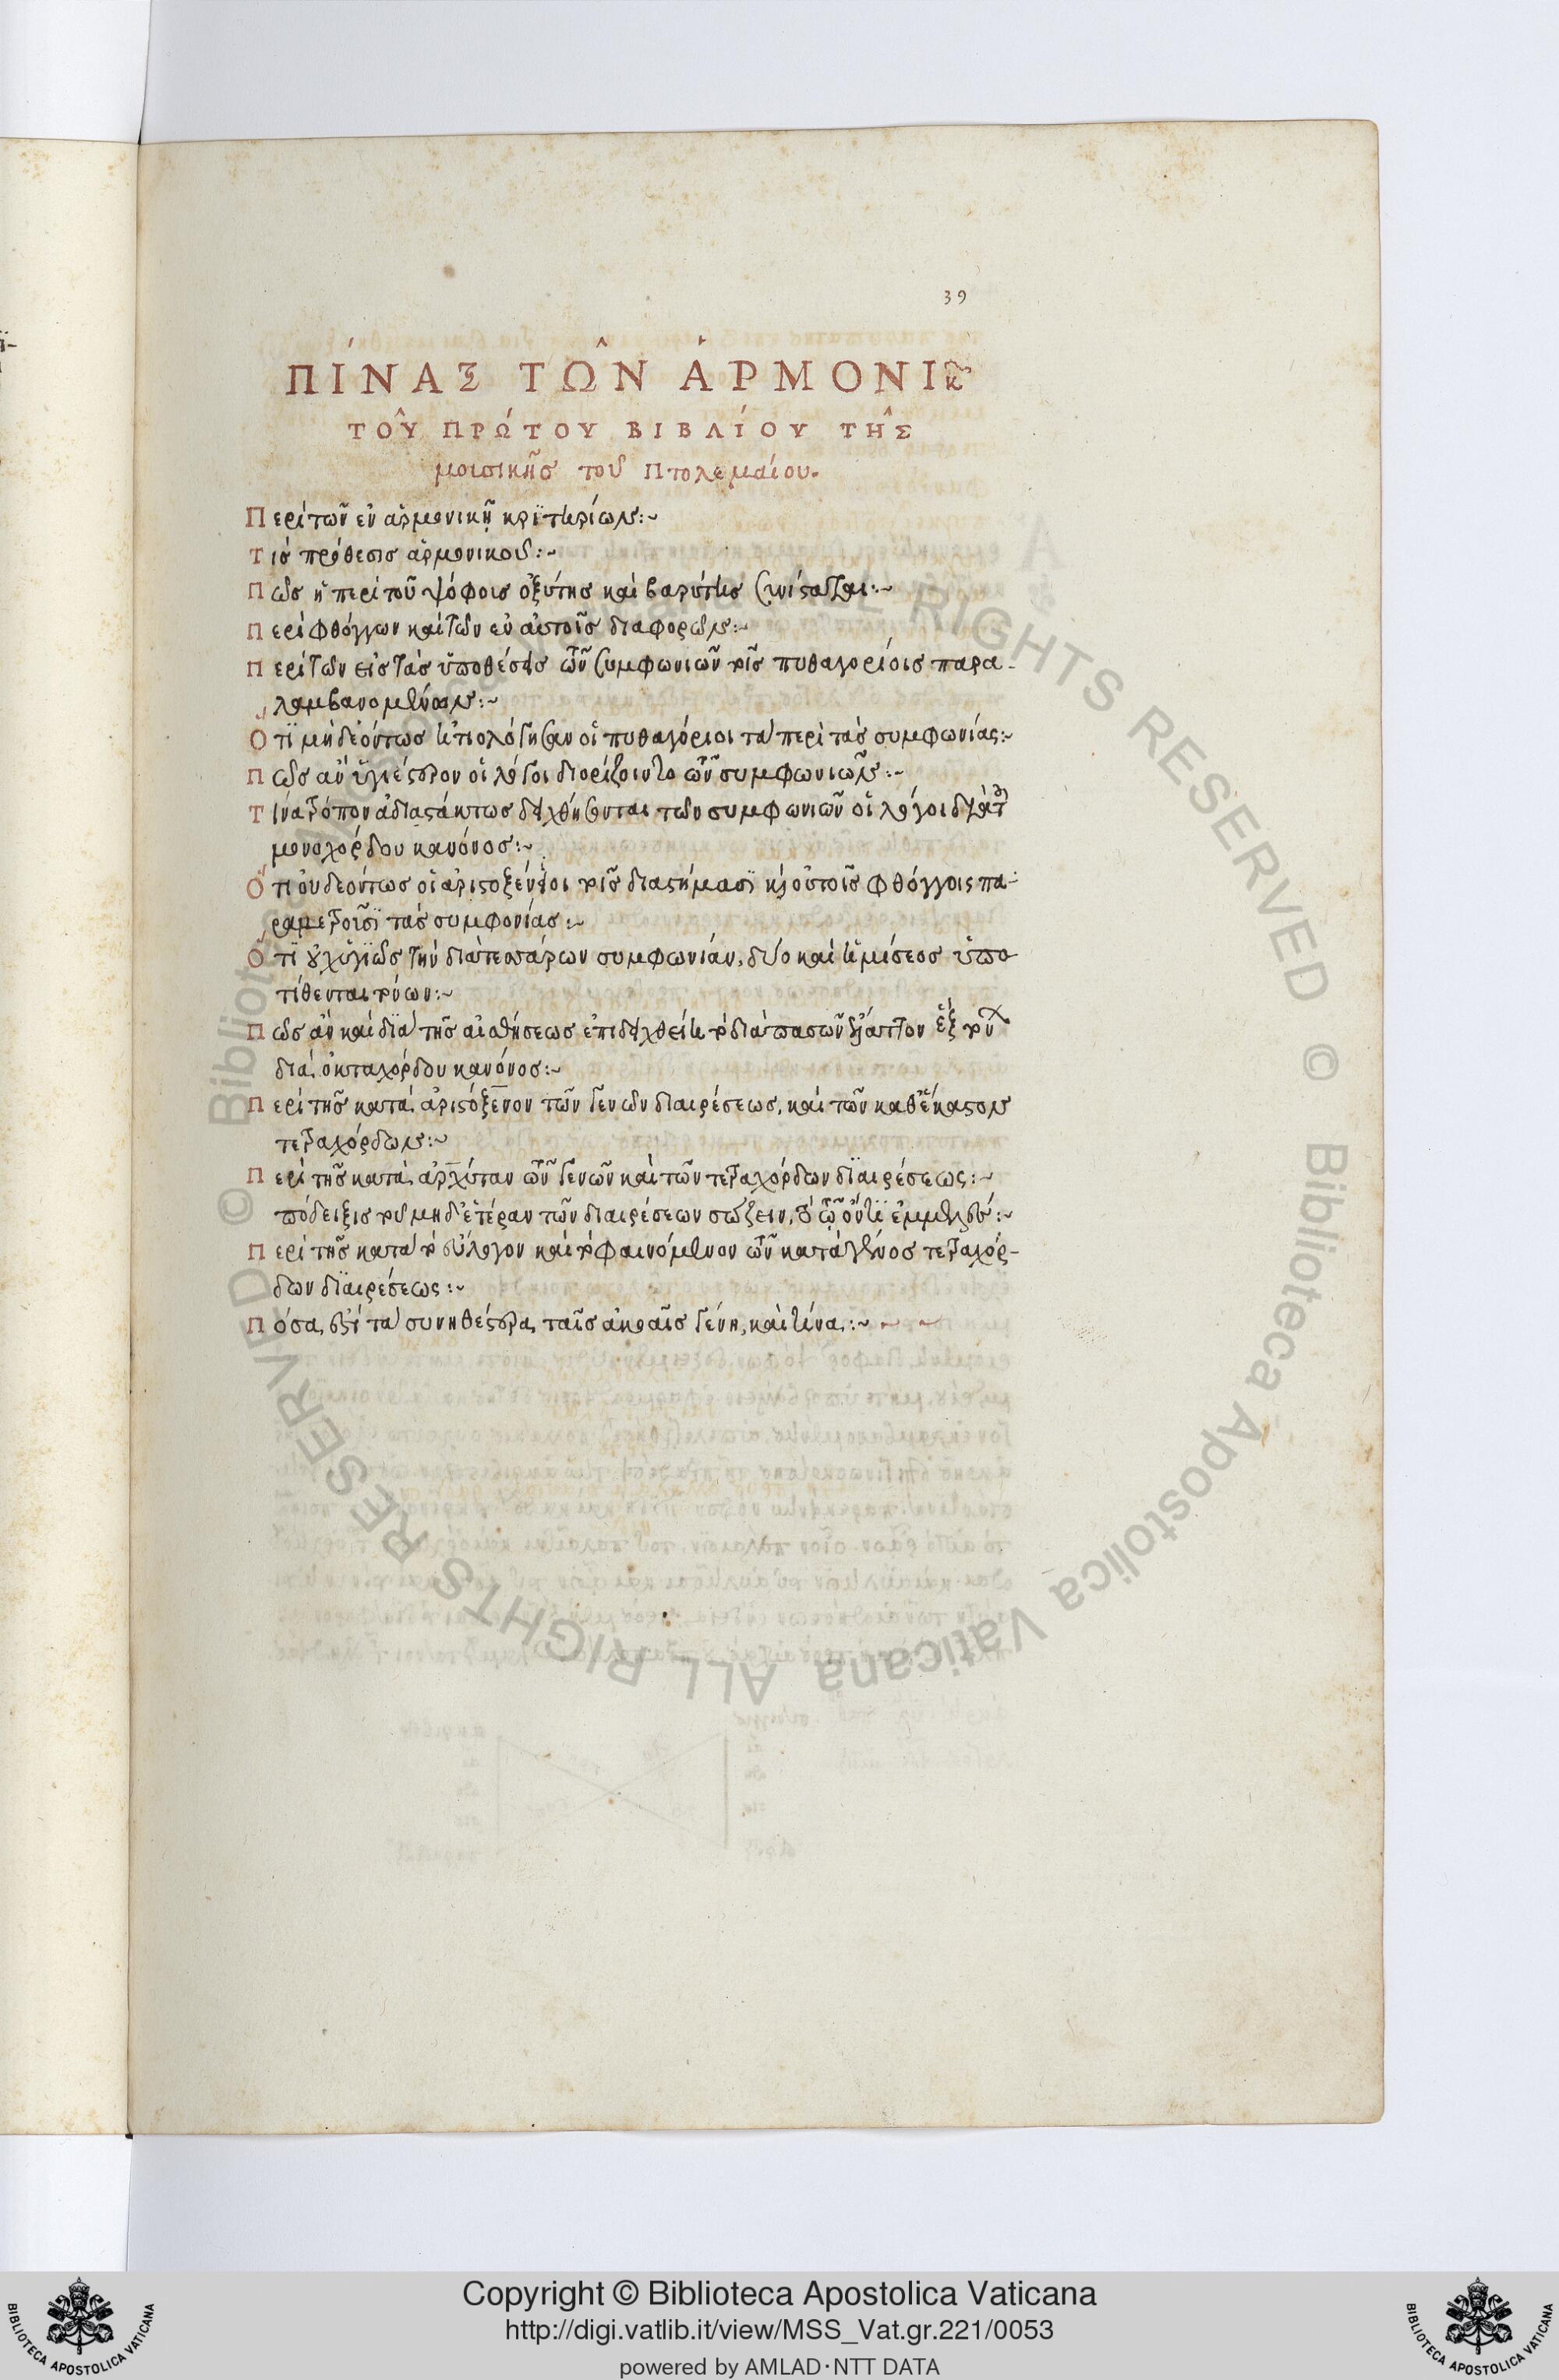 39
ΠΊΝΑΞ ΤΩ͂Ν ἈΡΜΟΝΙΚῶν
ΤΟΥ͂ ΠΡΏΤΟΥ ΒΙΒΛΊΟΥ ΤΗ͂Σ
μοισικῆς τοῦ Πτολεμαίου.
Περὶ τῶν ἐν ἁρμονικῇ κριτηρίων:~
Τίς πρόθεσις ἁρμονικοῦ:~
Πῶς ἡ περὶ τοῦ ψόφοις ὀξύτης καὶ βαρύτης συνίσταται:~
Περὶ φθόγγων καὶ τῶν ἐν αὐτοῖς διαφορῶν:~
Περὶ τῶν εἰς τὰς ὑποθέσεις τῶν συμφωνιῶν τοῖς πυθαγορίοις παρα-
λαμβανομένων:~
Ὅτι μὴ δεόντως ἠτιολόγησαν οἱ πυθαγόριοι τὰ περὶ τὰς συμφωνίας:~
Πῶς ἂν ὑγιέστερον οἱ λόγοι διορίζοιντο τῶν συμφωνιῶν:~
Τίνα τρόπον ἀδιαστάκτως δειχθήσονται τῶν συμφωνιῶν οἱ λόγοι διὰ τοῦ
μονοχόρδου κανόνος:~
Ὅτι οὐ δεόντως οἱ ἀριστοξένειοι τοῖς διαστήμασι καὶ οὐ τοῖς φθόγγοις πα-
ραμετροῦσι τὰς συμφονίας:~
Ὅτι οὐχ ὑγιῶς τὴν διὰ τεσσάρων συμφωνίαν, δύο καὶ ἡμίσεος ὑπο
τίθενται τόνων:~
Πῶς ἂν καὶ διὰ τῆς αἰσθήσεως ἐπιδειχθείη τὸ διὰ πασῶν ἔλαττον ἓξ τόνων
διὰ ὀκταχόρδου κανόνος:~
Περὶ τῆς κατὰ ἀριστόξενον τῶν γενῶν διαιρέσεως, καὶ τῶν καθ' ἕκαστον
τετραχόρδων:~
Περὶ τῆς κατὰ ἀρχύταν τῶν γενῶν καὶ τῶν τετραχόρδων διαιρέσεως:~
πόδειξις τοῦ μηδ' ἑτέραν τῶν διαιρέσεων σώζειν,
Περὶ τῆς κατὰ τὸ εὔλογον καὶ τὸ φαινόμενον τῶν κατὰ γένος τετραχόρ-
δων διαιρέσεως:~
Πόσα ἐστὶ τὰ συνηθέστερα ταῖς ἀκοαῖς γένη, καὶ τίνα:~ ~ ~
© Biblioteca Apostolica Vaticana ALL RIGHTS RESERVED © Biblioteca Apostolica Vaticana ALL RIGHTS RESERVED
Copyright © Biblioteca Apostolica Vaticana
http://digi.vatlib.it/view/MSS_Vat.gr.221/0053
powered by AMLAD·NTT DATA
BIBLIOTECA APOSTOLICA VATICANA
BIBLIOTECA APOSTOLICA VATICANA